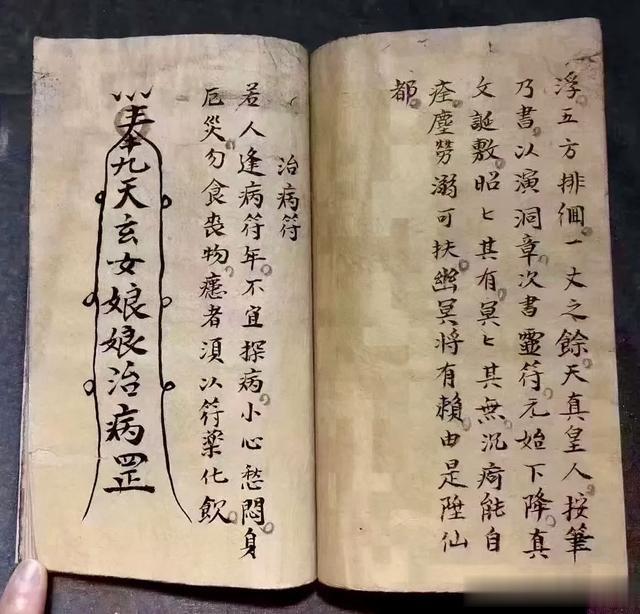 浮五方排徊一丈之餘天真皇人按筆
乃書以演洞章次書靈符元始下降真
文誕敷昭匕其有冥匕其無沉疴能自
痊塵勞溺可扶幽冥將有賴由是陞仙
都
治病符
若人逢病符年不宜探病小心愁悶身
厄災勿食喪物癒者須以符藥化飲
奉九天玄女娘娘治病罡